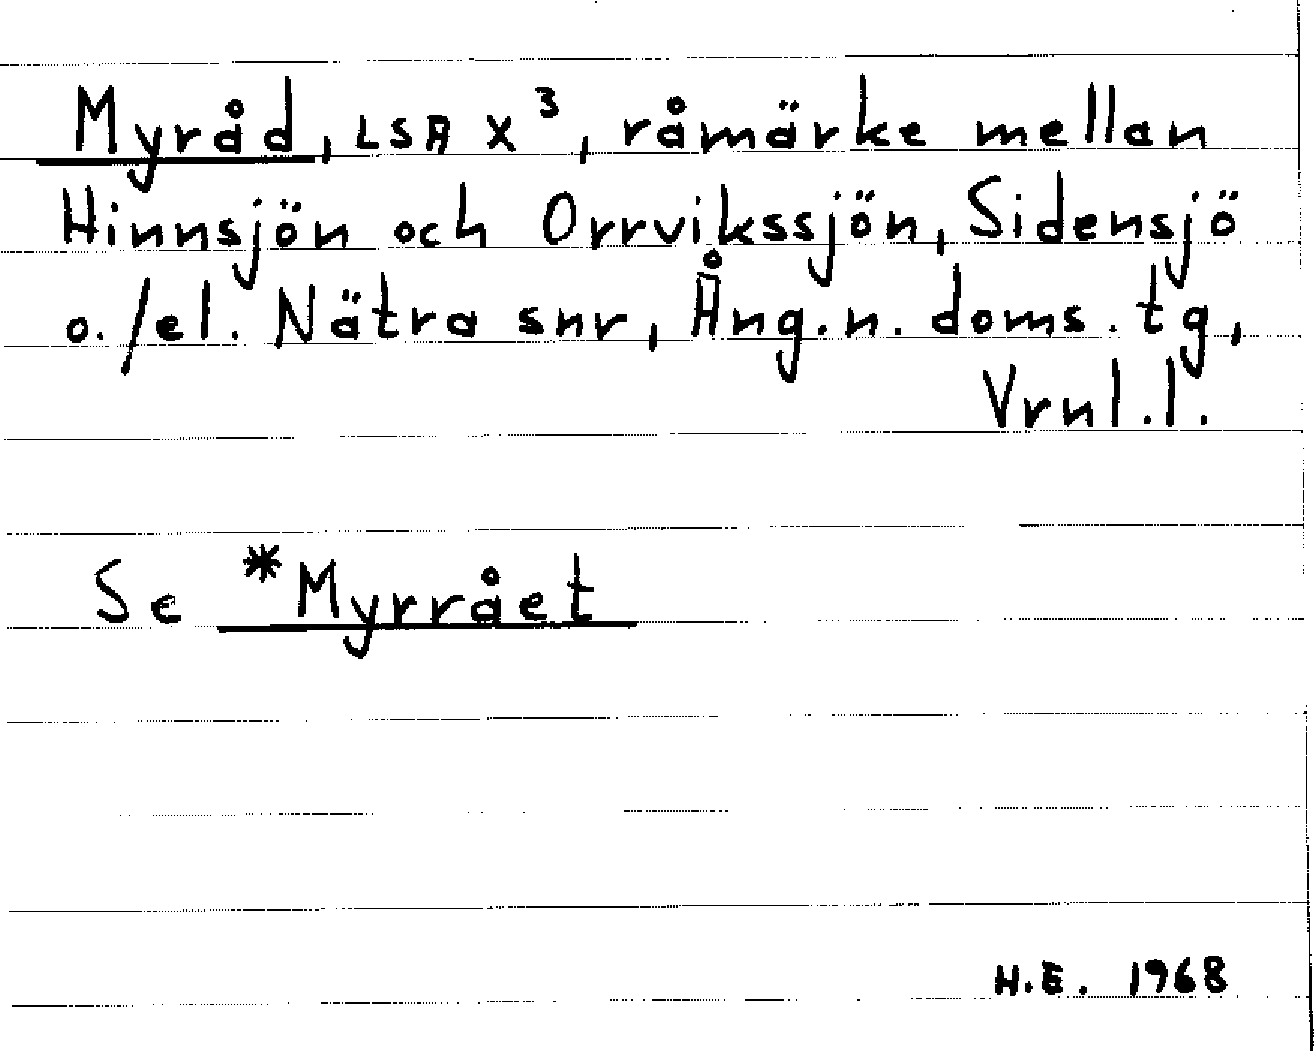 Myråd, LSA X³, råmärke mellan
Hinnsjön och Orrvikssjön, Sidensjö
o./el. Nätra snr, Ång.n. doms. tg,
Vrnl.l.
Se *Myrrået
H.E. 1968